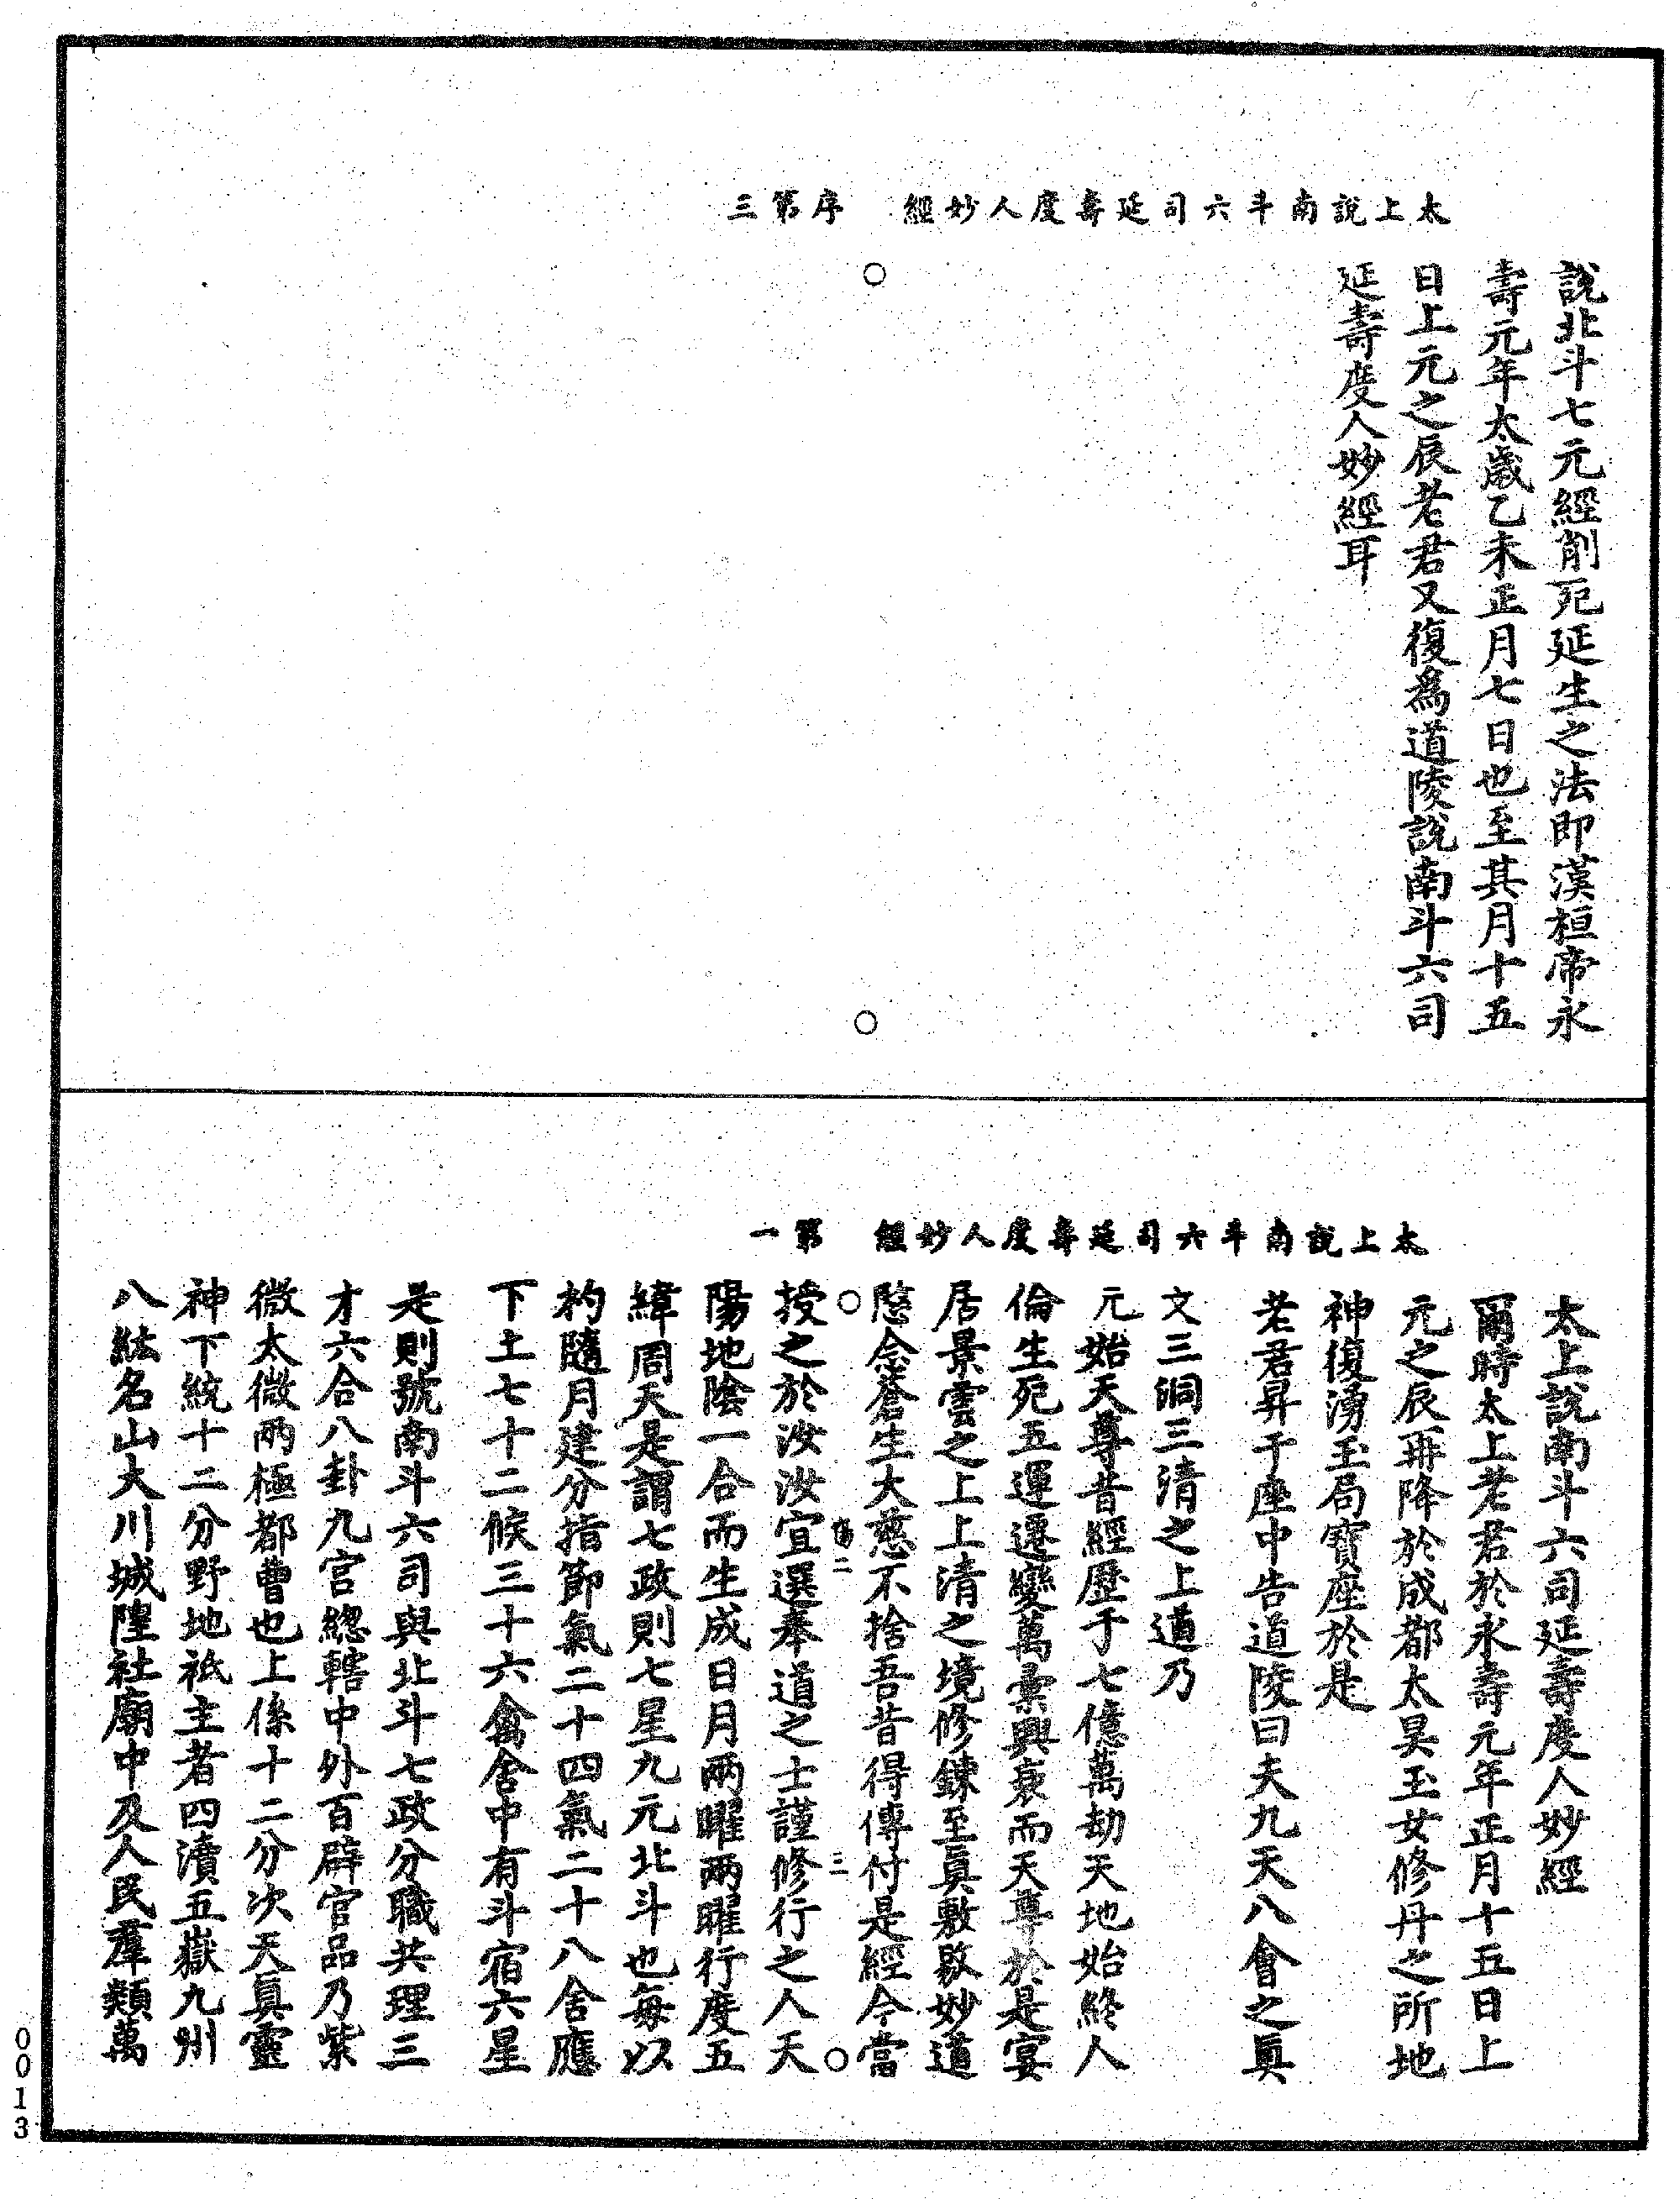 太上說南斗六司延壽度人妙經　序第三
說北斗七元經削死延生之法即漢桓帝永
壽元年太歲乙未正月七日也至其月十五
日上元之辰老君又復為道陵說南斗六司
延壽度人妙經耳
太上說南斗六司延壽度人妙經　第一
太上說南斗六司延壽度人妙經
爾時太上老君於永壽元年正月十五日上
元之辰再降於成都太昊玉女修丹之所地
神復湧玉局寶座於是
老君昇于座中告道陵曰夫九天八會之眞
文三洞三清之上道乃
元始天尊昔經歷于七億萬劫天地始終人
倫生死五運遷變萬彙興衰而天尊於是宴
居景雲之上上清之境修鍊至眞敷敭妙道
愍念蒼生大慈不捨吾昔得傳付是經今當
傷二
三
授之於汝汝宜選奉道之士謹修行之人天
陽地陰一合而生成日月兩曜兩曜行度五
緯周天是謂七政則七星九元北斗也每以
杓隨月建分指節氣二十四氣二十八舍應
下土七十二候三十六禽舍中有斗宿六星
是則號南斗六司與北斗七政分職共理三
才六合八卦九宮總轄中外百辟官品乃紫
微太微兩極都曹也上係十二分次天眞靈
神下統十二分野地祇主者四瀆五嶽九州
八紘名山大川城隍社廟中及人民羣類萬
0013